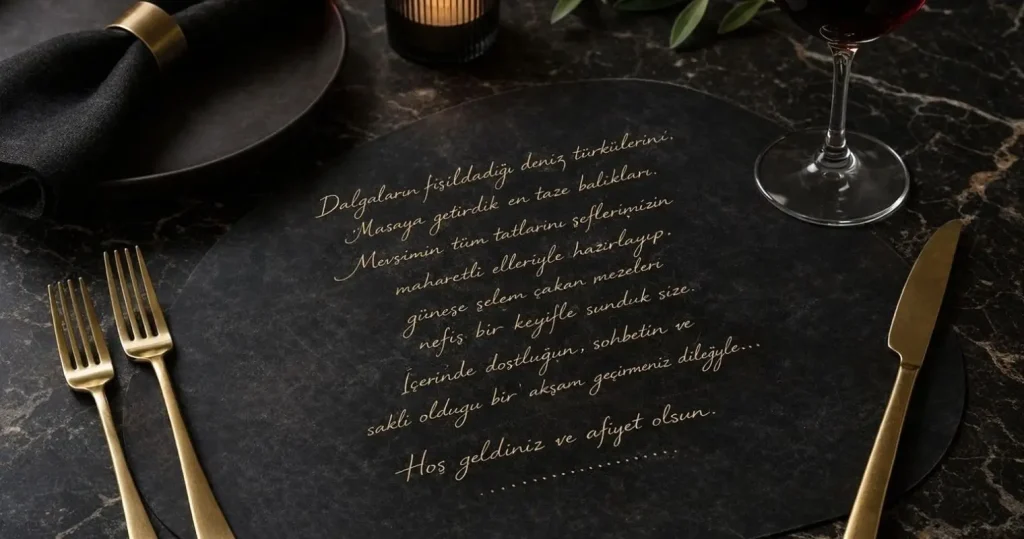 Dalgaların fısıldadığı deniz türkülerini.
Masaya getirdik en taze balıkları.
Mevsimin tüm tatlarını şeflerimizin
maharetli elleriyle hazırlayıp.
güneşe selem çakan mezeleri
nefis bir keyifle sunduk size.
İçerinde dostluğun, sohbetin ve
sakli olduğu bir akşam geçirmeniz dileğyle...
Hoş geldiniz ve afiyet olsun.